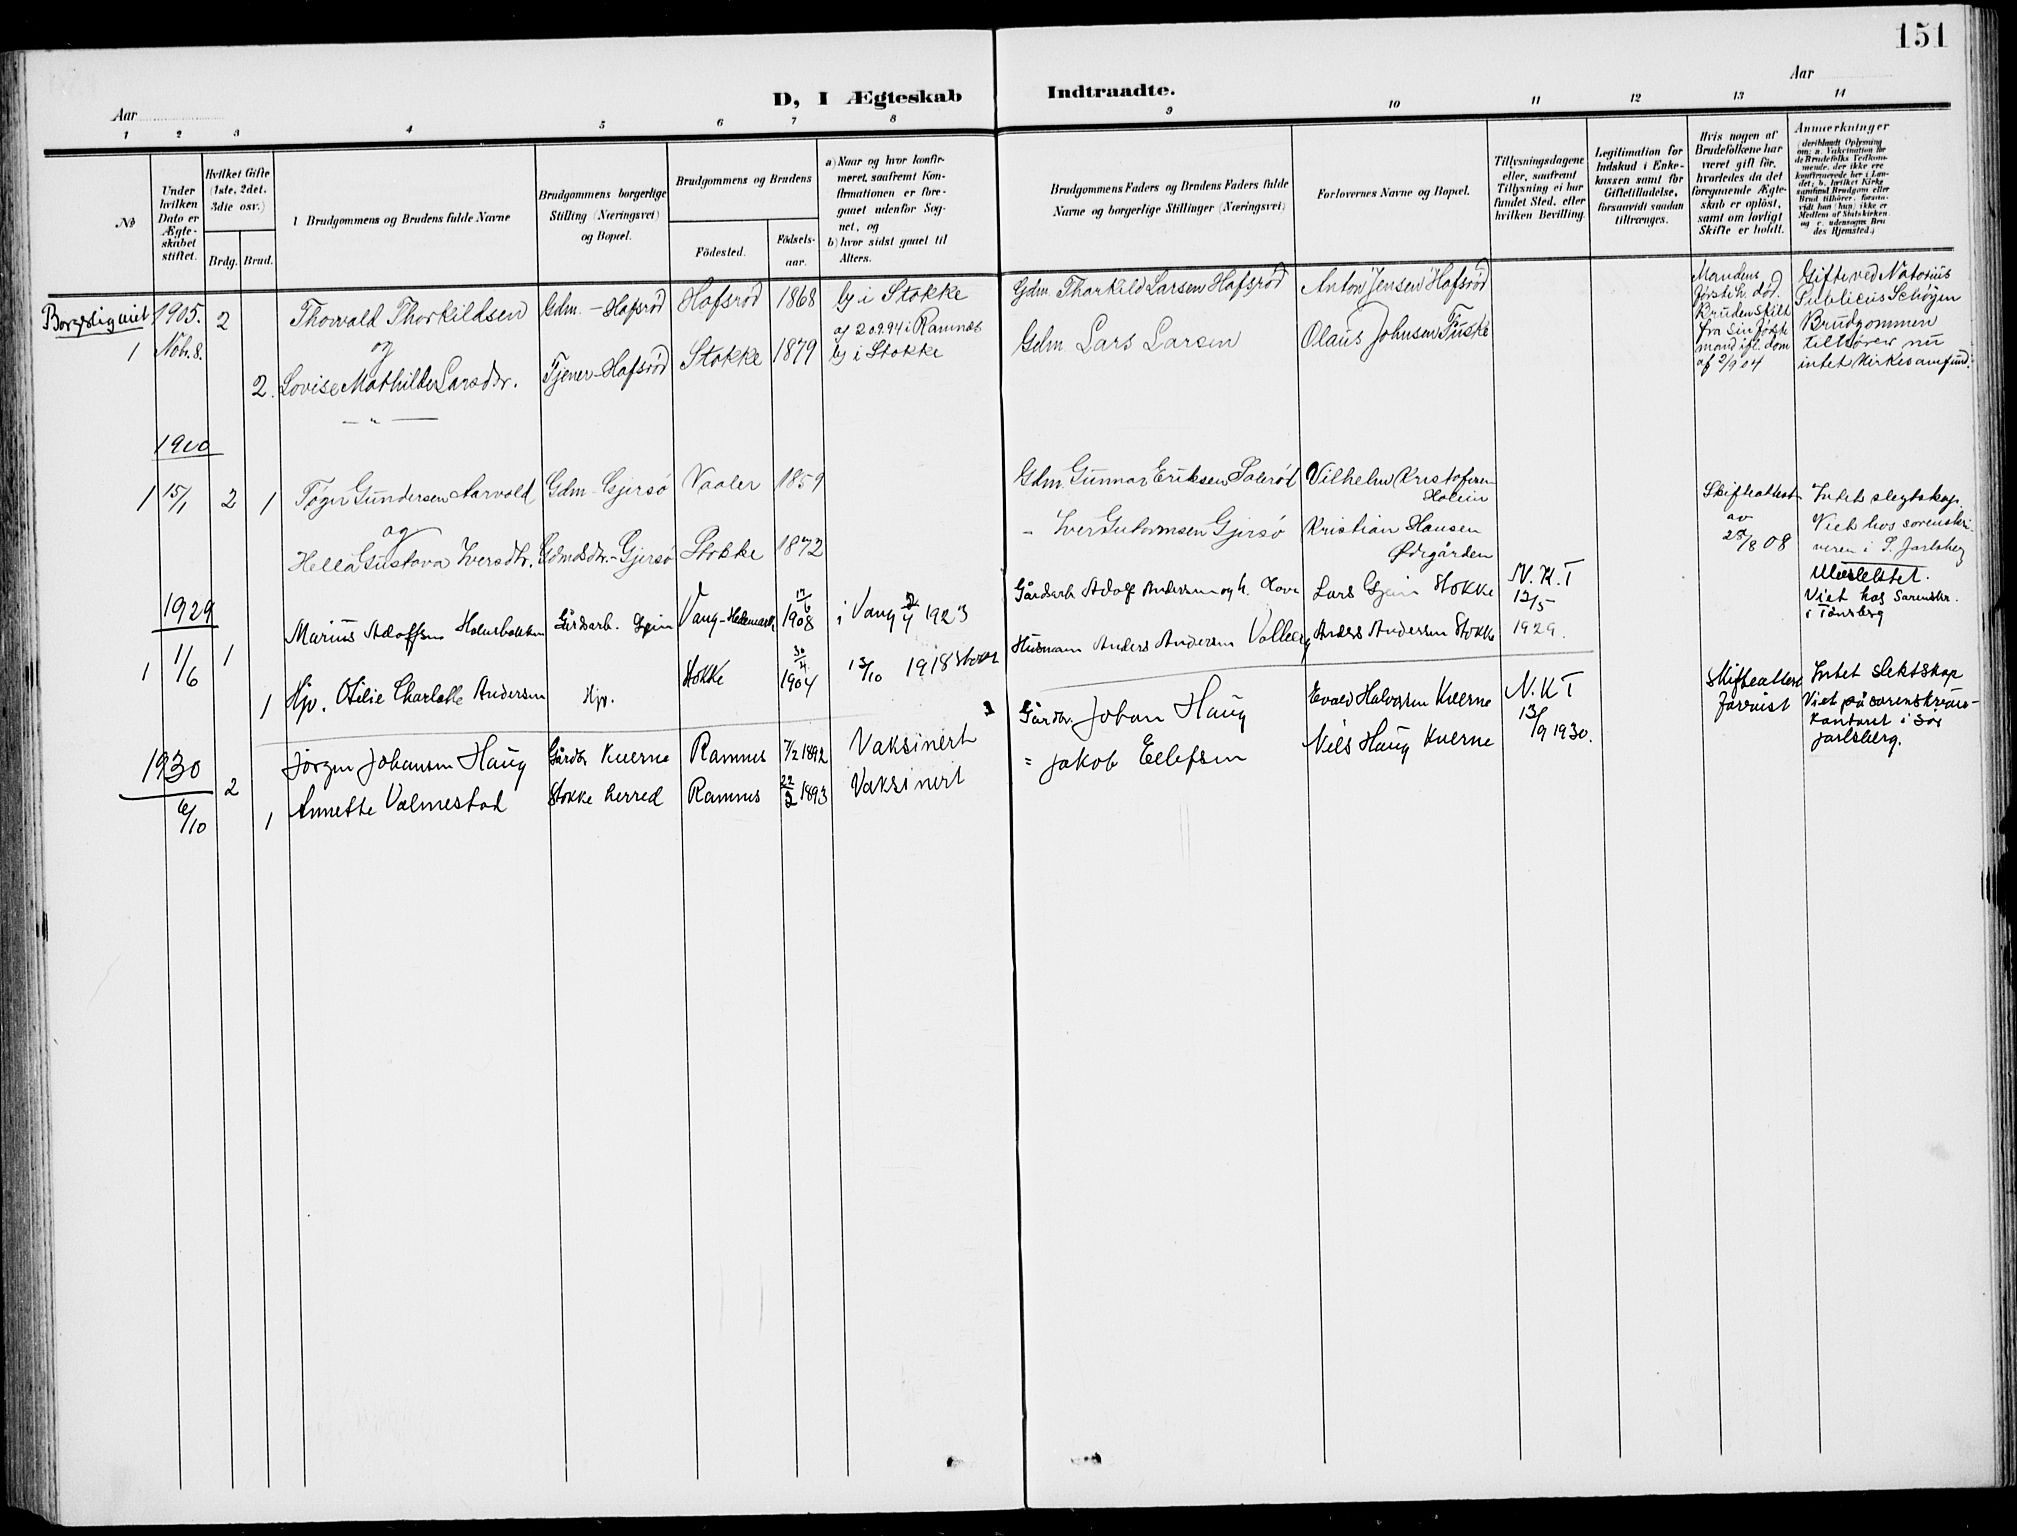 151
Aar
Aar
D, I Ægteskab Indtraadte.
1 2 3 4 5 6 7 8 9 10 11 12 13 14
No
Under hvilken Dato er Ægteskabet stiftet.
Hvilket Gifte (1ste, 2det, 3die osv.)
Brdg. Brud.
Brudgommens og Brudens fulde Navne
Brudgommens borgerlige Stilling (Næringsvei) og Bopæl.
Brudgommens og Brudens
Födested.
Födselsaar.
a) Naar og hvor konfirmeret, saafremt Konfirmationen er foregaaet udenfor Sognet, og
b) hvor sidst gaaet til Alters.
Brudgommens Faders og Brudens Faders fulde Navne og borgerlige Stillinger (Næringsvei)
Forlovernes Navne og Bopæl.
Tillysningsdagene eller, saafremt Tillysning ei har fundet Sted, efter hvilken Bevilling.
Legitimation for Indskud i Enkekassen samt for Giftetilladelse, forsaavidt saadan tiltrænges.
Hvis nogen af Brudefolkene har været gift för, hvorledes da det foregaaende Ægteskab er oplöst, samt om lovligt Skifte er holdt.
Anmærkninger
(deriblandt Oplysning om: a. Vakcination for de Brudefolks Vedkommende, der ikke ere konfirmerede her i Landet; b. hvilket Kirkesamfund Brudgom eller Brud tilhörer, forsaavidt han (hun) ikke er Medlem af Statskirken, og c. udensogns Brudes Hjemsted.)
Borgerlig viet
1905. 2 Thorvald Thorkildsen Gdm. - Hafsrød Hafsrød 1868 b) i Stokke Gdm. Thorkild Larsen Hafsrød Anton Jensen Hafsrød
1 Nobr. 8. og
2. Lovise Mathilde Larsdtr. Tjener - Hafsrød Stokke 1879 a) 20.9.94 i Ramnæs
b) i Stokke Gdm. Lars Larsen Olaus Johnsen Fuske
Mandens første h. død. Bruden skilt fra sin første mand ifl. dom af 2/9 04
Gifte ved Notarius Publicus Schøyen Brudgommen tilhører nu intet kirkesamfund.
1 15/1 2 1 Gundersen Aarvold Gdm - Gjersø Vaaler 1859 Gdm. Gunnar Eriksen Vilhelm Kristofersen
og
Hella Gustava Iversdtr. Gdmdsdtr. - Gjersø Stokke 1872 - Iver Guttormsen Gjersø Kristian Hansen Ødegården
Skifteattest av 28/8 08
Intet slegtskap. Viet hos sorenskriveren i S. Jarlsberg
1929
1 1/6 1 Marius Adolfsen Gårdarb. Gjein Vang - Hedemark 17/6 1908 i Vang 1923 Gårdarb Adolf Andersen og h. Lars Gjein Stokke N. K. T 12/5 1929.
1 Hjv. Otilie Charlotte Andersen Hjv. Stokke 30/4 1904 13/10 1918 Stokke Husmann Anders Andersen Anders Andersen Stokke
Ubeslektet. Viet hos Sorenskr. i Tønsberg
1930
6/10 2 Jörgen Johansen Haug Gårdbr Kverne Ramnes 7/2 1892 Vaksinert Gårdbr. Johan Haug Evald Halvorsen Kverne N. K T 13/9 1930.
1 Annette Valmestad Stokke herred Ramnes 22/2 1893 Vaksinert " Jakob Ellefsen Nils Haug Kverne
Skifteattest forevist
Intet slektskap Viet på sorenskriverkontoret i Sør Jarlsberg.